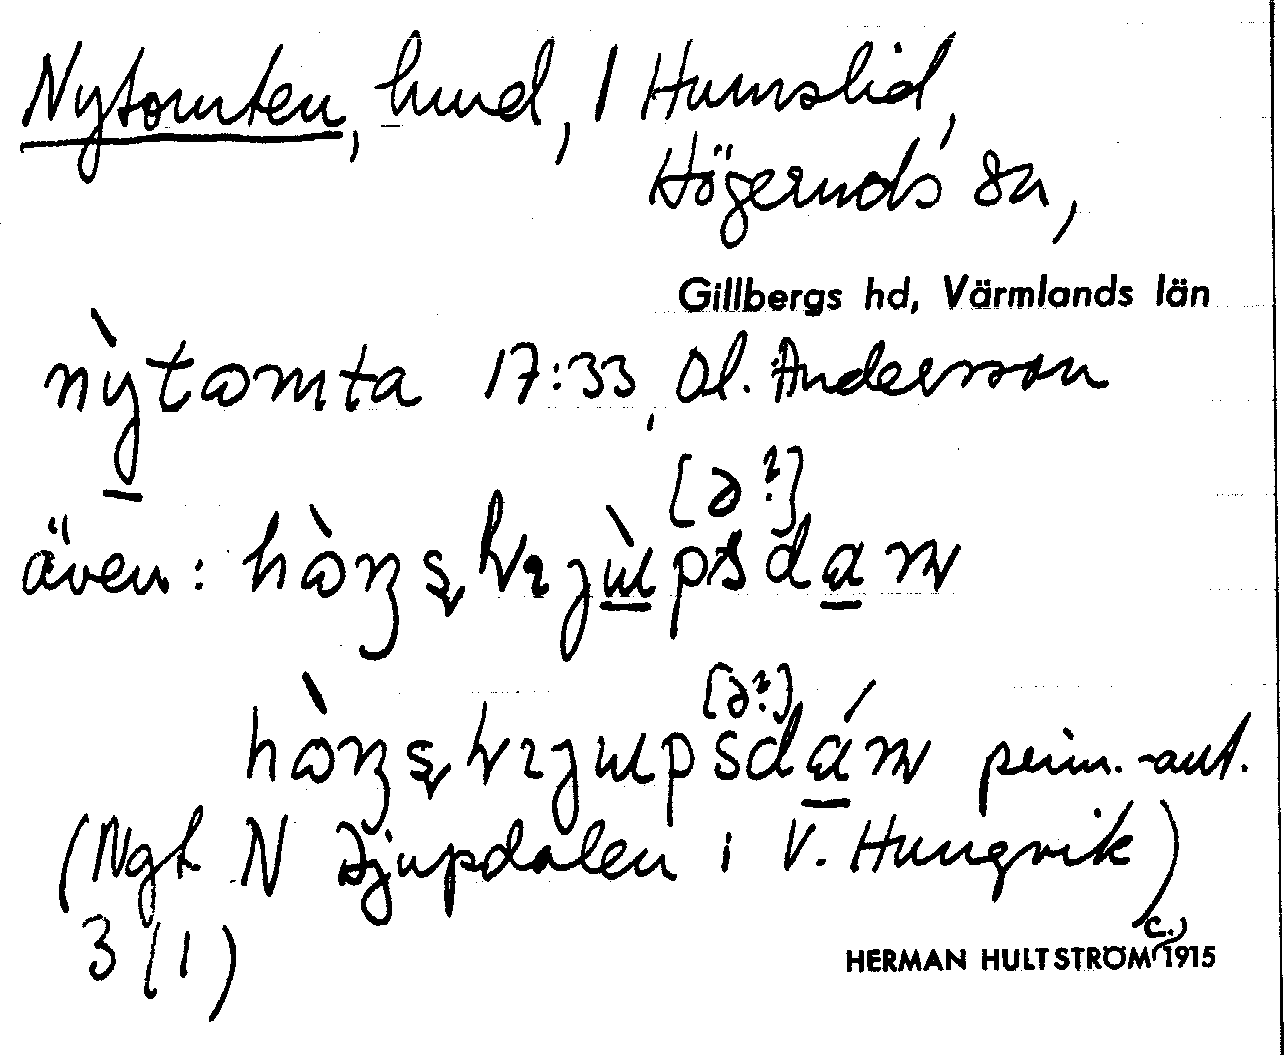 Nytomten, hmd, 1 Humslid,
Högeruds sn,
Gillbergs hd, Värmlands län
nỳtomta 17:33, Ol. Andersson
[ə?]
även:
[ə?]
prim.-aut.
(Ngt N Djupdalen i V. Hungvik)
3 (1)
HERMAN HULTSTRÖM c. 1915